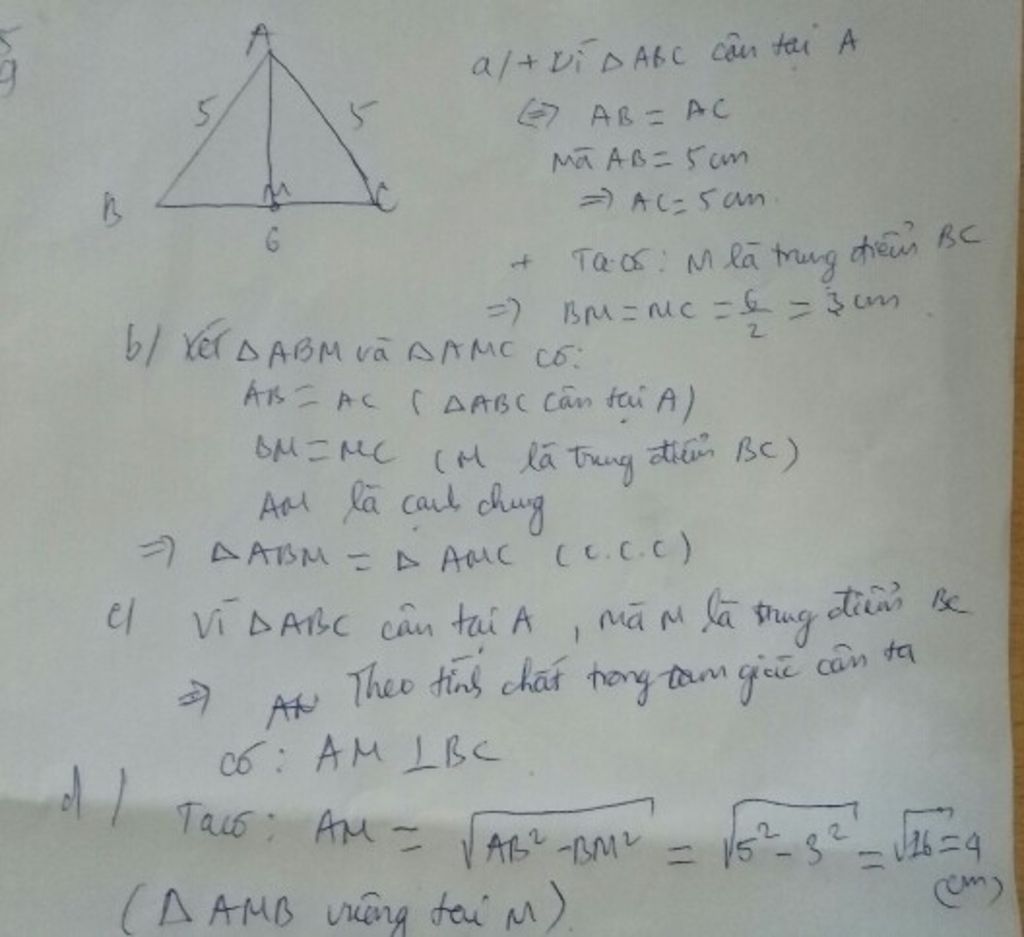 A
5 5
B M C
6
a/ + Vì △ABC cân tại A
(=> AB = AC
Mà AB = 5 cm
=> AC = 5 cm.
+ Ta có: M là trung điểm BC
=> BM = MC = 6/2 = 3 cm.
b/ Xét △ABM và △AMC có:
AB = AC ( △ABC cân tại A)
BM = MC (M là trung điểm BC)
AM là cạnh chung
=> △ABM = △AMC (C.C.C)
c/ Vì △ABC cân tại A , mà M là trung điểm BC
=> Theo tính chất trong tam giác cân ta
có : AM ⊥ BC
d/ Ta có : AM = √AB² - BM² = √5² - 3² = √16 = 4 (cm)
( △ AMB vuông tại M)